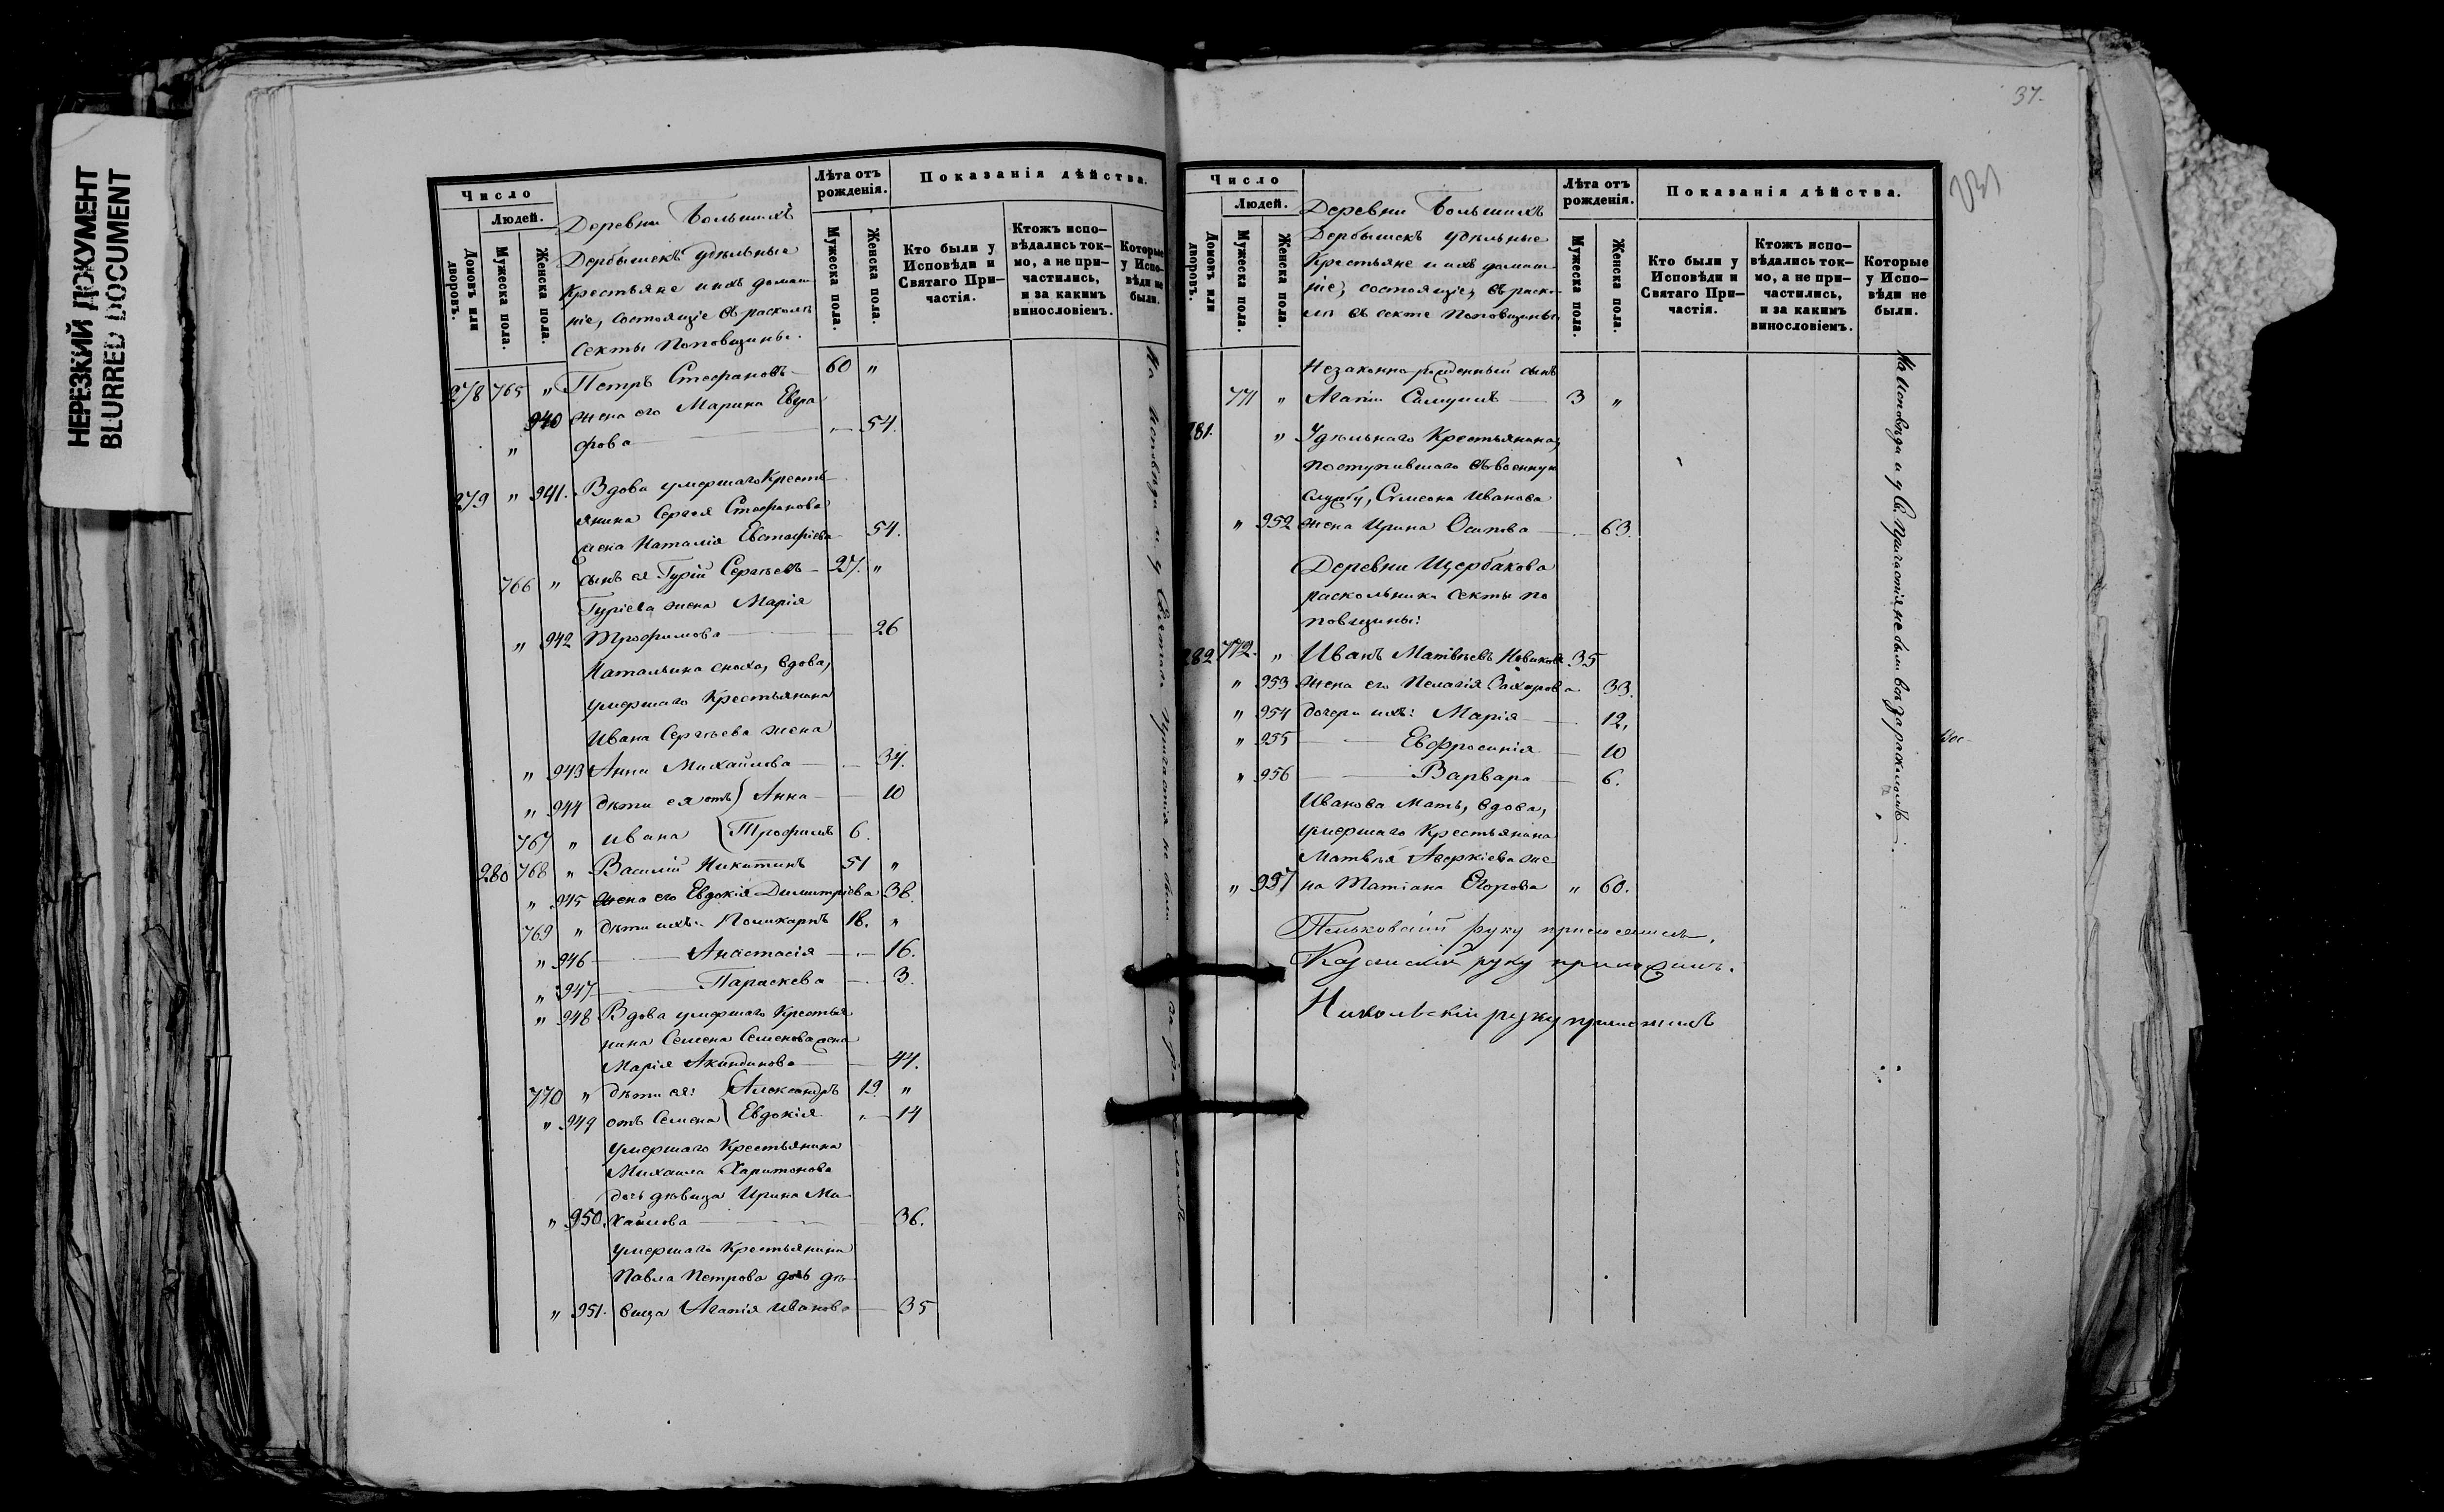 НЕРЕЗКИЙ ДОКУМЕНТ
BLURRED DOCUMENT
Число
Людей.
Домовъ или дворовъ.
Мужеска пола.
Женска пола.
Деревни Большихъ
Дербышекъ удѣльные
Крестьяне и ихъ домаш
ніе, состоящіе въ расколѣ
Секты Поповщины.
Лѣта отъ рожденія.
Мужеска пола.
Женска пола.
Показанія дѣйства.
Кто были у Исповѣди и Святаго При-
частія.
Ктожъ испо-
вѣдались ток-
мо, а не при-
частились,
и за какимъ
винословіемъ.
Которые
у Испо-
вѣди не
были.
278 765 „ Петръ Стефановъ — 60 „
940 жена его Марина Евгра
„ фова — „ — 54.
279 „ 941. Вдова умершаго Кресть-
янина Сергея Стефанова
жена Наталія Евстафіева 54.
766 „ сынъ ея Гурій Сергѣевъ — 27. „
Гуріева жена Марія
„ 942 Трофимова — 26
Натальина сноха, вдова,
умершаго Крестьянина
Ивана Сергѣева жена
„ 943 Анна Михайлова — 34.
„ 944 дѣти ея отъ Анна — 10
767 „ Ивана Трофимъ 6.
280 768 „ Василій Никитинъ 51 „
„ 945 жена его Евдокія Димитріева 38.
769 „ дѣти ихъ: Поликарпъ 18. „
„ 946 — Анастасія — 16.
„ 947 — Параскева — 3.
„ 948 Вдова умершаго Крестья
нина Семена Семенова жена
Марія Акиндинова — 44.
770 „ дѣти ея: Александръ 19. „
„ 949 отъ Семена Евдокія „ — 14
умершаго Крестьянина
Михаила Харитонова
дочь дѣвица Ирина Ми-
„ 950. хайлова — 36.
умершаго Крестьянина
Павла Петрова дочь дѣ-
„ 951. вица Агапія Иванова — 35
На Исповѣди и у Святаго Причастія не были
за
37.
Число
Людей.
Домовъ или дворовъ.
Мужеска пола.
Женска пола.
Деревни Большихъ
Дербышекъ удѣльные
Крестьяне и ихъ домаш-
ніе, состоящіе, въ раско-
лѣ въ секте Поповщины
Лѣта отъ рожденія.
Мужеска пола.
Женска пола.
Показанія дѣйства.
Кто были у Исповѣди и Святаго При-
частія.
Ктожъ испо-
вѣдались ток-
мо, а не при-
частились,
и за какимъ
винословіемъ.
Которые
у Испо-
вѣди не
были.
Незаконно-рожденный сынъ
771 „ Агапіи Самуилъ — 3 „
281. „ Удѣльнаго Крестьянина,
поступившаго въ военную
службу, Симеона Иванова
„ 952 жена Ирина Осипова — 63.
Деревни Щербакова
раскольники секты по
повщины:
282 772. „ Иванъ Матвѣевъ Новиковъ 35
„ 953 жена его Пелагія Захарова 33.
„ 954 дочери ихъ: Марія — 12,
„ 955 — Евфросинія — 10
„ 956 — Варвара — 6.
Иванова Мать, вдова,
умершаго Крестьянина
Матвѣя Аверкіева же-
„ 957 на Татіана Егорова „ 60.
руку приложилъ.
Казанскій руку приложилъ.
Никольскій руку приложилъ
На Исповѣди и у Св. Причастія не были всѣ за расколомъ.